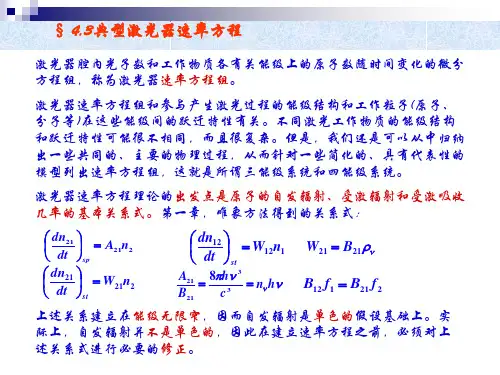 § 4.3典型激光器速率方程
激光器腔内光子数和工作物质各有关能级上的原子数随时间变化的微分
方程组，称为激光器速率方程组。
激光器速率方程组和参与产生激光过程的能级结构和工作粒子(原子、
分子等)在这些能级间的跃迁特性有关。不同激光工作物质的能级结构
和跃迁特性可能很不相同，而且很复杂。但是，我们还是可以从中归纳
出一些共同的、主要的物理过程，从而针对一些简化的、具有代表性的
模型列出速率方程组，这就是所谓三能级系统和四能级系统。
激光器速率方程组理论的出发点是原子的自发辐射、受激辐射和受激吸收
几率的基本关系式。第一章，唯象方法得到的关系式：
(dn21/dt)sp = A21n2 (dn12/dt)st = W12n1 W21 = B21ρν
(dn21/dt)st = W21n2 A21/B21 = 8πhν³/c³ = nνhν B12 f1 = B21 f2
上述关系建立在能级无限窄，因而自发辐射是单色的假设基础上。实
际上，自发辐射并不是单色的，因此在建立速率方程之前，必须对上
述关系式进行必要的修正。